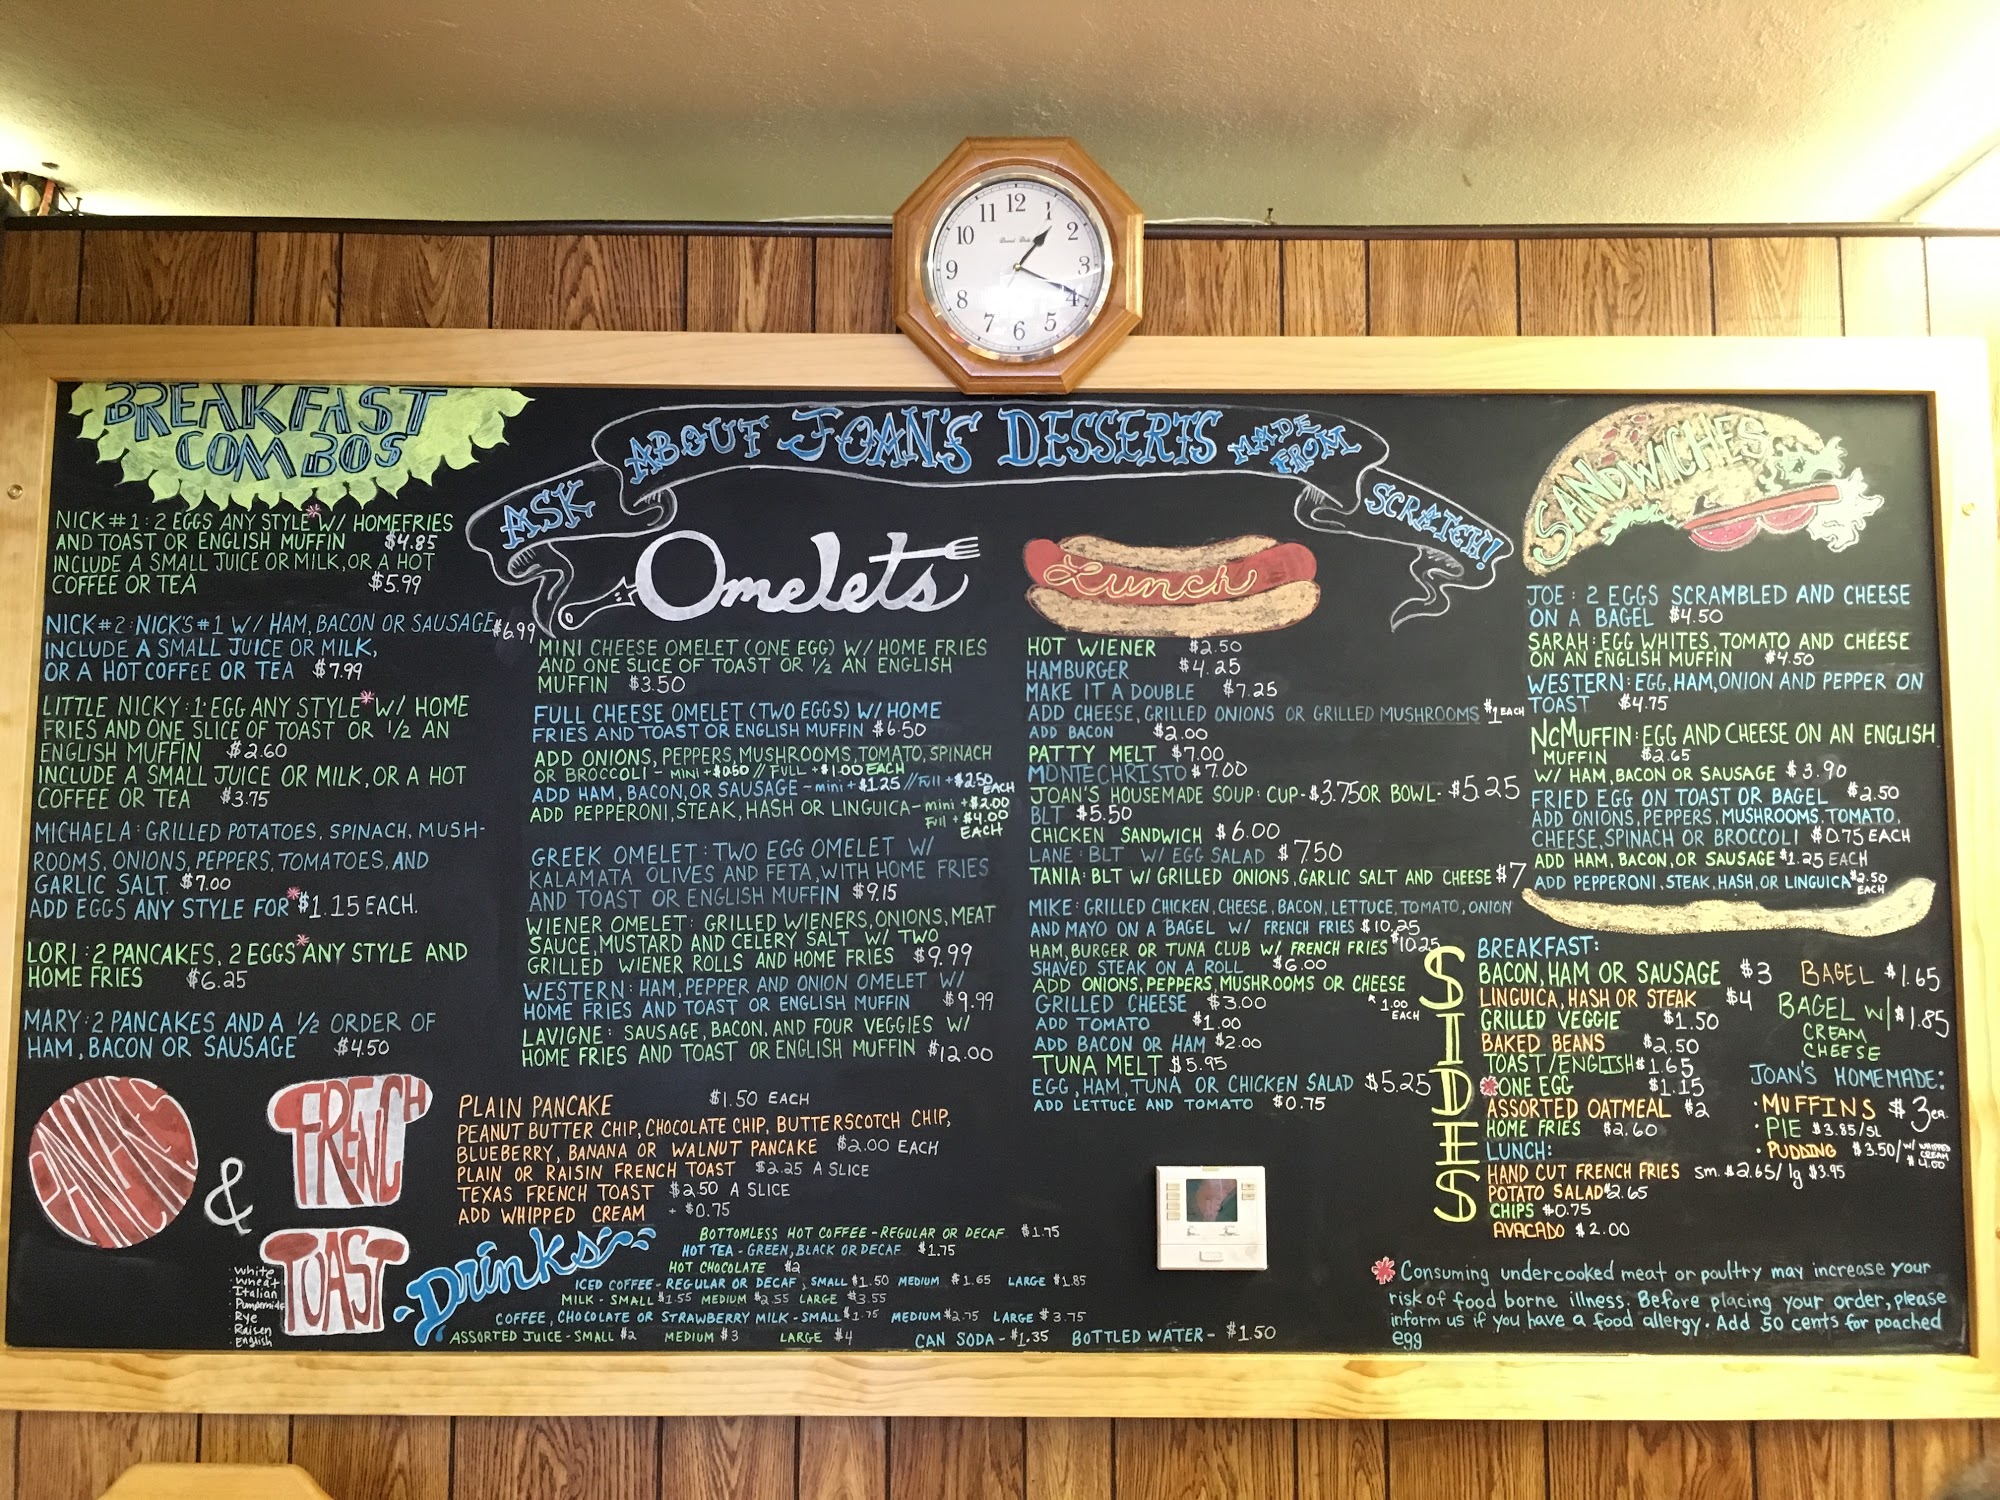 12
1
2
3
4
5
6
7
8
9
10
11
ASK ABOUT JOAN'S DESSERTS MADE FROM SCRATCH!
BREAKFAST
COMBOS
NICK #1: 2 EGGS ANY STYLE* W/ HOMEFRIES
AND TOAST OR ENGLISH MUFFIN $4.85
INCLUDE A SMALL JUICE OR MILK, OR A HOT
COFFEE OR TEA $5.99
NICK #2: NICK'S #1 W/ HAM, BACON OR SAUSAGE $6.99
INCLUDE A SMALL JUICE OR MILK,
OR A HOT COFFEE OR TEA $7.99
LITTLE NICKY: 1 EGG ANY STYLE* W/ HOME
FRIES AND ONE SLICE OF TOAST OR 1/2 AN
ENGLISH MUFFIN $2.60
INCLUDE A SMALL JUICE OR MILK, OR A HOT
COFFEE OR TEA $3.75
MICHAELA: GRILLED POTATOES, SPINACH, MUSH-
ROOMS, ONIONS, PEPPERS, TOMATOES, AND
GARLIC SALT. $7.00
ADD EGGS ANY STYLE FOR *$1.15 EACH.
LORI: 2 PANCAKES, 2 EGGS* ANY STYLE AND
HOME FRIES $6.25
MARY: 2 PANCAKES AND A 1/2 ORDER OF
HAM, BACON OR SAUSAGE $4.50
Omelets
MINI CHEESE OMELET (ONE EGG) W/ HOME FRIES
AND ONE SLICE OF TOAST OR 1/2 AN ENGLISH
MUFFIN $3.50
FULL CHEESE OMELET (TWO EGGS) W/ HOME
FRIES AND TOAST OR ENGLISH MUFFIN $6.50
ADD ONIONS, PEPPERS, MUSHROOMS, TOMATO, SPINACH
OR BROCCOLI - MINI +$0.50 // FULL +$1.00 EACH
ADD HAM, BACON, OR SAUSAGE - mini +$1.25 // Full +$2.50 EACH
ADD PEPPERONI, STEAK, HASH OR LINGUICA - mini +$2.00
Full +$4.00
EACH
GREEK OMELET: TWO EGG OMELET W/
KALAMATA OLIVES AND FETA, WITH HOME FRIES
AND TOAST OR ENGLISH MUFFIN $9.15
WIENER OMELET: GRILLED WIENERS, ONIONS, MEAT
SAUCE, MUSTARD AND CELERY SALT W/ TWO
GRILLED WIENER ROLLS AND HOME FRIES $9.99
WESTERN: HAM, PEPPER AND ONION OMELET W/
HOME FRIES AND TOAST OR ENGLISH MUFFIN $9.99
LAVIGNE: SAUSAGE, BACON, AND FOUR VEGGIES W/
HOME FRIES AND TOAST OR ENGLISH MUFFIN $12.00
Lunch
HOT WIENER $2.50
HAMBURGER $4.25
MAKE IT A DOUBLE $7.25
ADD CHEESE, GRILLED ONIONS OR GRILLED MUSHROOMS $1 EACH
ADD BACON $2.00
PATTY MELT $7.00
MONTECHRISTO $7.00
JOAN'S HOUSEMADE SOUP: CUP - $3.75 OR BOWL - $5.25
BLT $5.50
CHICKEN SANDWICH $6.00
LANE: BLT W/ EGG SALAD $7.50
TANIA: BLT W/ GRILLED ONIONS, GARLIC SALT AND CHEESE $7
MIKE: GRILLED CHICKEN, CHEESE, BACON, LETTUCE, TOMATO, ONION
AND MAYO ON A BAGEL W/ FRENCH FRIES $10.25
HAM, BURGER OR TUNA CLUB W/ FRENCH FRIES $10.25
SHAVED STEAK ON A ROLL $6.00
ADD ONIONS, PEPPERS, MUSHROOMS OR CHEESE
1.00
EACH
GRILLED CHEESE $3.00
ADD TOMATO $1.00
ADD BACON OR HAM $2.00
TUNA MELT $5.95
EGG, HAM, TUNA OR CHICKEN SALAD $5.25
ADD LETTUCE AND TOMATO $0.75
SANDWICHES
JOE: 2 EGGS SCRAMBLED AND CHEESE
ON A BAGEL $4.50
SARAH: EGG WHITES, TOMATO AND CHEESE
ON AN ENGLISH MUFFIN $4.50
WESTERN: EGG, HAM, ONION AND PEPPER ON
TOAST $4.75
NCMUFFIN: EGG AND CHEESE ON AN ENGLISH
MUFFIN $2.65
W/ HAM, BACON OR SAUSAGE $3.90
FRIED EGG ON TOAST OR BAGEL $2.50
ADD ONIONS, PEPPERS, MUSHROOMS, TOMATO,
CHEESE, SPINACH OR BROCCOLI $0.75 EACH
ADD HAM, BACON, OR SAUSAGE $1.25 EACH
ADD PEPPERONI, STEAK, HASH, OR LINGUICA $2.50 EACH
SIDES
BREAKFAST:
BACON, HAM OR SAUSAGE $3
LINGUICA, HASH OR STEAK $4
GRILLED VEGGIE $1.50
BAKED BEANS $2.50
TOAST/ENGLISH $1.65
*ONE EGG $1.15
ASSORTED OATMEAL $2
HOME FRIES $2.60
LUNCH:
HAND CUT FRENCH FRIES sm. $2.65/ lg $3.95
POTATO SALAD $2.65
CHIPS $0.75
AVACADO $2.00
BAGEL $1.65
BAGEL W/ $1.85
CREAM
CHEESE
JOAN'S HOMEMADE:
· MUFFINS $3 ea.
· PIE $3.85/SL
· PUDDING $3.50/ W/ WHIPPED CREAM $4.00
PANCAKES
&
FRENCH
TOAST
· White
· Wheat
· Italian
· Rye
· Raisen
· English
PLAIN PANCAKE $1.50 EACH
PEANUT BUTTER CHIP, CHOCOLATE CHIP, BUTTERSCOTCH CHIP,
BLUEBERRY, BANANA OR WALNUT PANCAKE $2.00 EACH
PLAIN OR RAISIN FRENCH TOAST $2.25 A SLICE
TEXAS FRENCH TOAST $2.50 A SLICE
ADD WHIPPED CREAM + $0.75
Drinks
BOTTOMLESS HOT COFFEE - REGULAR OR DECAF $1.75
HOT TEA - GREEN, BLACK OR DECAF $1.75
HOT CHOCOLATE $2
ICED COFFEE - REGULAR OR DECAF, SMALL $1.50 MEDIUM $1.65 LARGE $1.85
MILK - SMALL $1.55 MEDIUM $2.55 LARGE $3.55
COFFEE, CHOCOLATE OR STRAWBERRY MILK - SMALL $1.75 MEDIUM $2.75 LARGE $3.75
ASSORTED JUICE - SMALL $2 MEDIUM $3 LARGE $4 CAN SODA - $1.35 BOTTLED WATER - $1.50
* Consuming undercooked meat or poultry may increase your
risk of food borne illness. Before placing your order, please
inform us if you have a food allergy. Add 50 cents for poached
egg